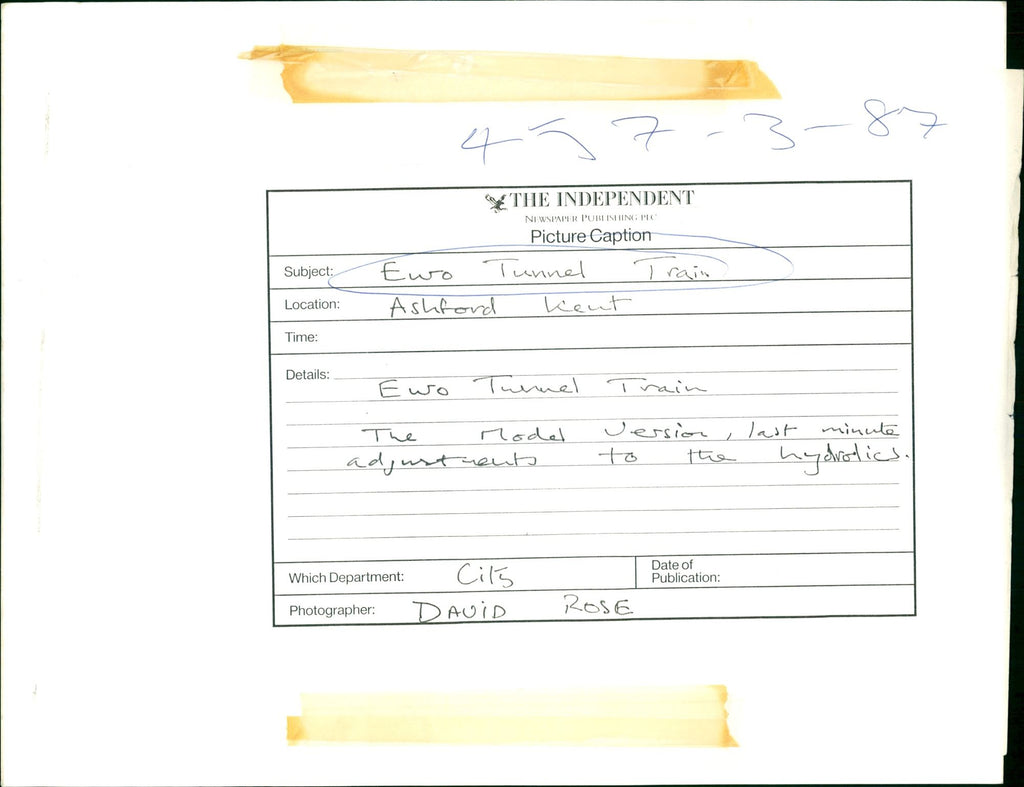 7-3-87
THE INDEPENDENT
NEWSPAPER PUBLISHING PLC
Picture Caption
Subject: Euro Tunnel Train
Location: Ashford Kent
Time:
Details:
Euro Tunnel Train
The Model Version, last minute
adjustments to the hydrolics.
Which Department: City
Date of
Publication:
Photographer: DAVID ROSE